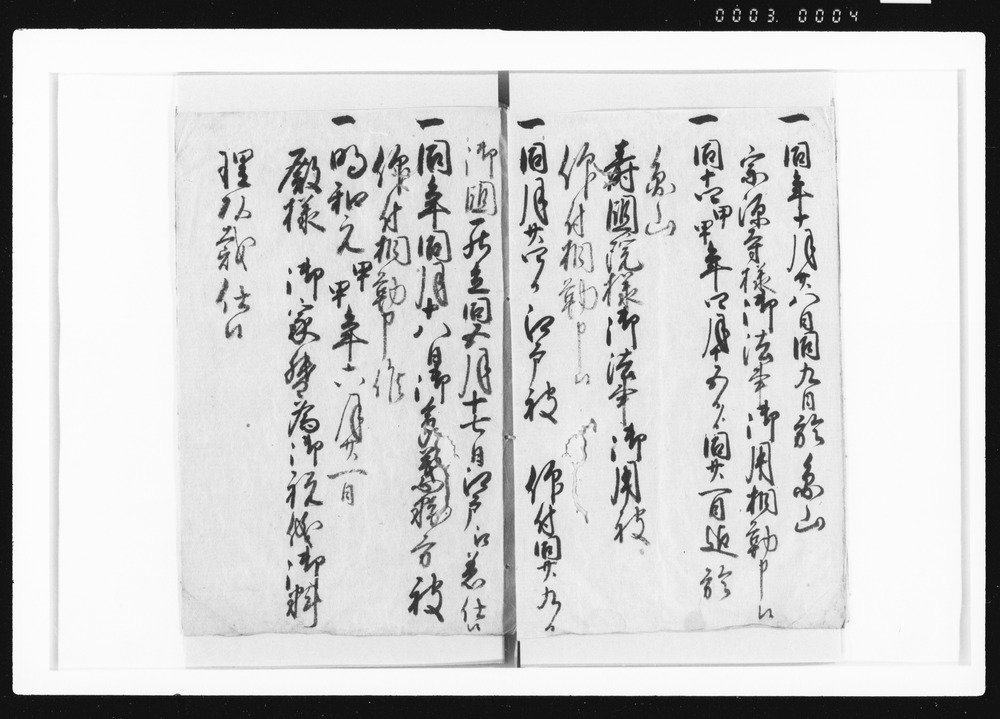 0003.0004
一 同年十月廿八日同九日於泉山
宗源寺様御法事御用相勤申候
一 同十四甲申年四月十五日ゟ同廿一日迄於
泉山
寿国院様御法事御用被
仰付相勤申候
一 同月廿四日江戸被 仰付同廿九日
御国罷立同五月十七日江戸江着仕候
一 同年同月十八日御方被
仰付相勤申候
一 明和元甲申年六月廿一日
殿様 御家督為御祝儀御料
理頂戴仕候